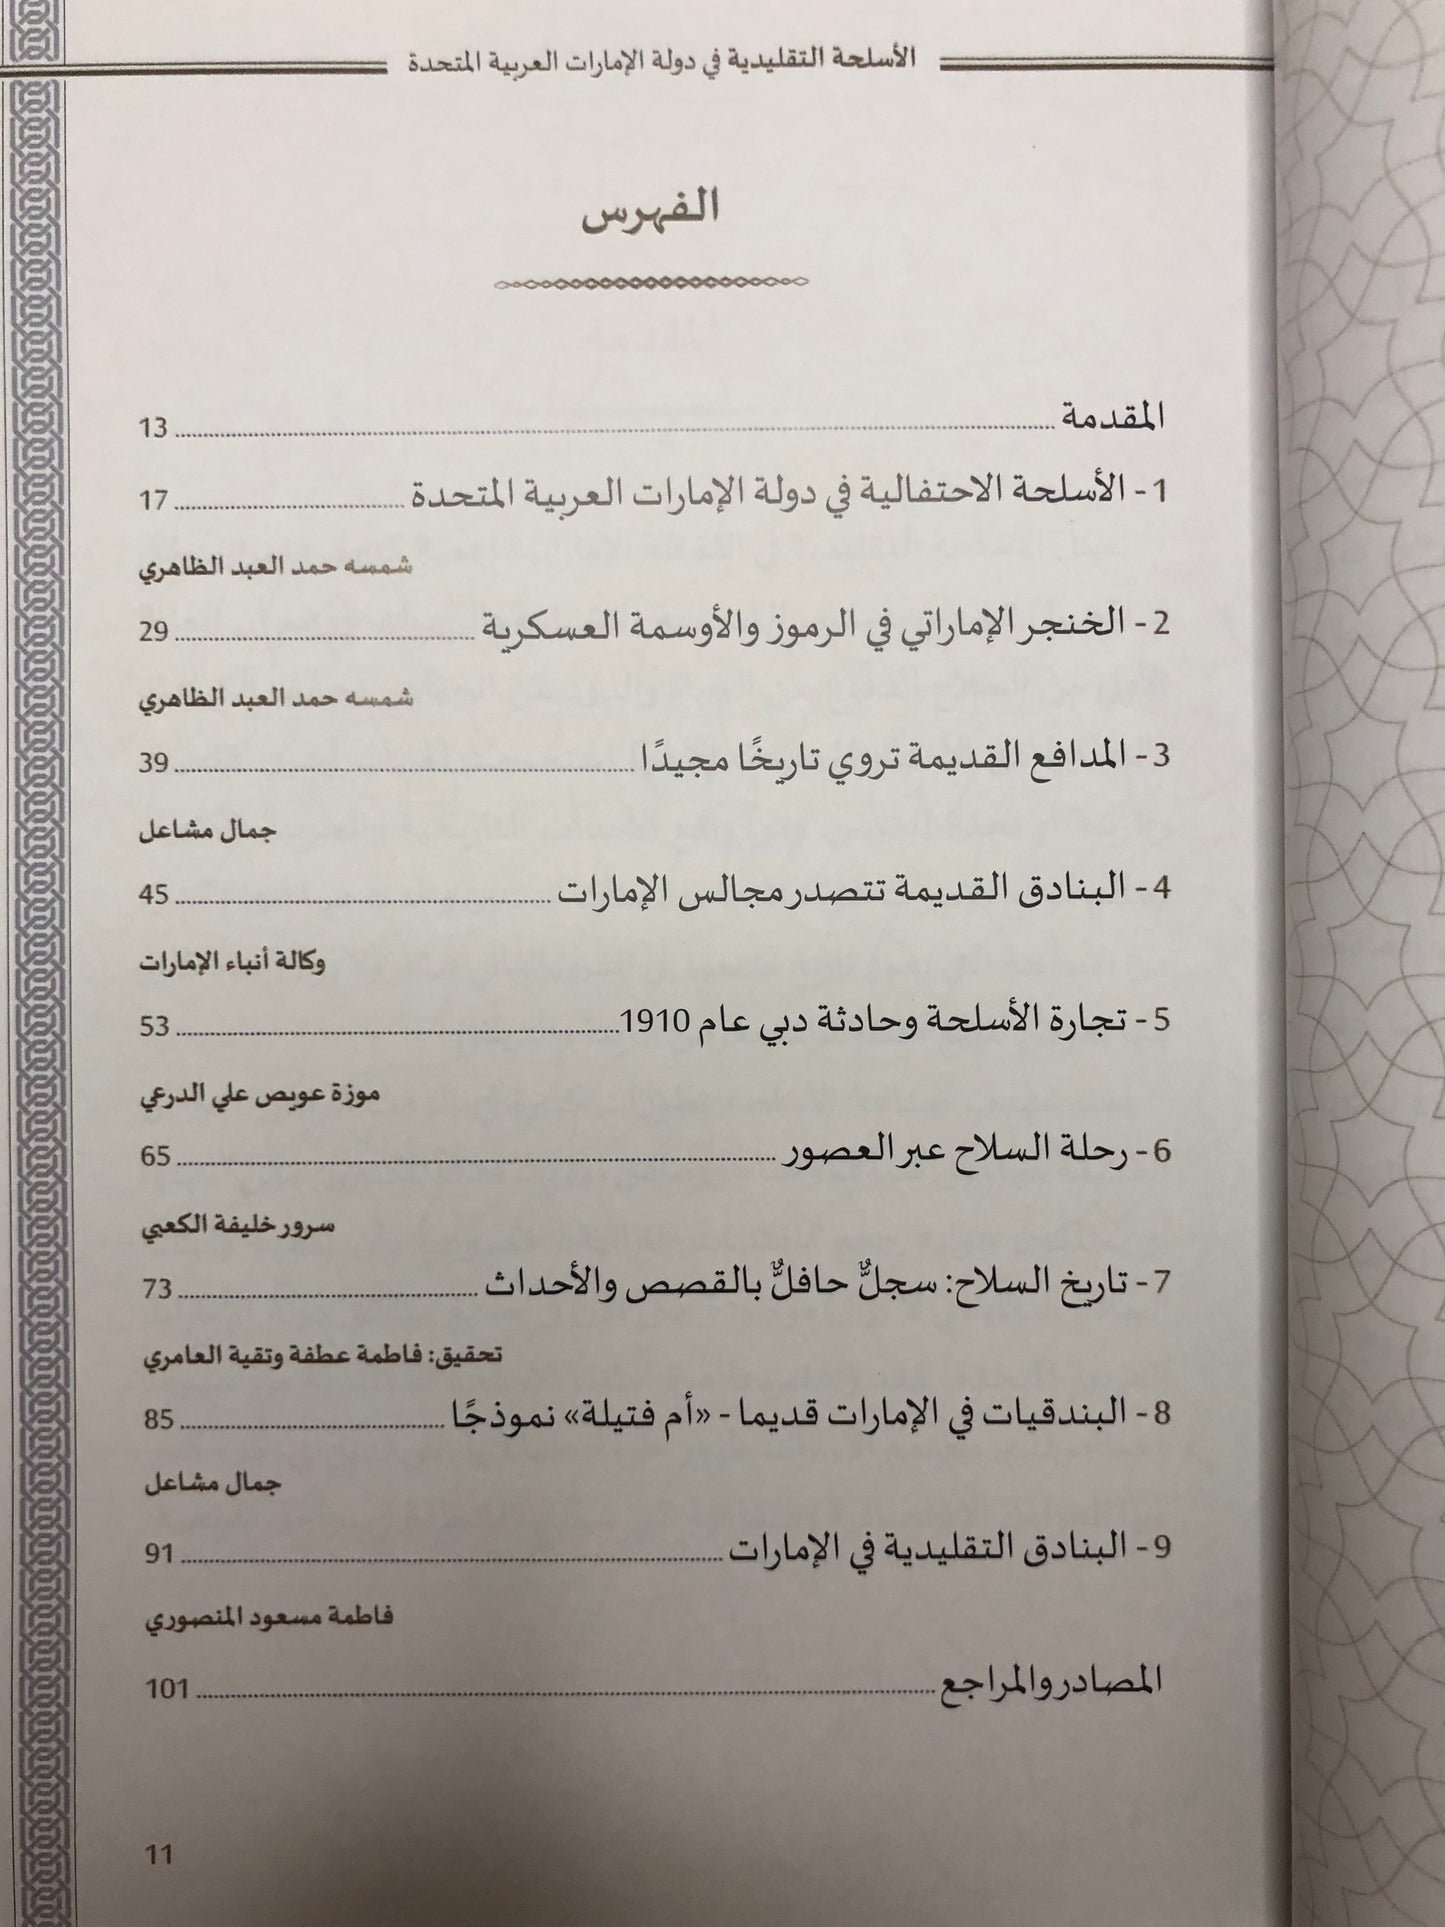 الأسلحة التقليدية في دولة الإمارات العربية المتحدة
الفهرس
المقدمة ........ 13
1 - الأسلحة الاحتفالية في دولة الإمارات العربية المتحدة ........ 17
شمسه حمد العبد الظاهري
2 - الخنجر الإماراتي في الرموز والأوسمة العسكرية ........ 29
شمسه حمد العبد الظاهري
3 - المدافع القديمة تروي تاريخًا مجيدًا ........ 39
جمال مشاعل
4 - البنادق القديمة تتصدر مجالس الإمارات ........ 45
وكالة أنباء الإمارات
5 - تجارة الأسلحة وحادثة دبي عام 1910 ........ 53
موزة عويص علي الدرعي
6 - رحلة السلاح عبر العصور ........ 65
سرور خليفة الكعبي
7 - تاريخ السلاح: سجلٌّ حافلٌّ بالقصص والأحداث ........ 73
تحقيق: فاطمة عطفة وتقية العامري
8 - البندقيات في الإمارات قديما - «أم فتيلة» نموذجًا ........ 85
جمال مشاعل
9 - البنادق التقليدية في الإمارات ........ 91
فاطمة مسعود المنصوري
المصادر والمراجع ........ 101
11